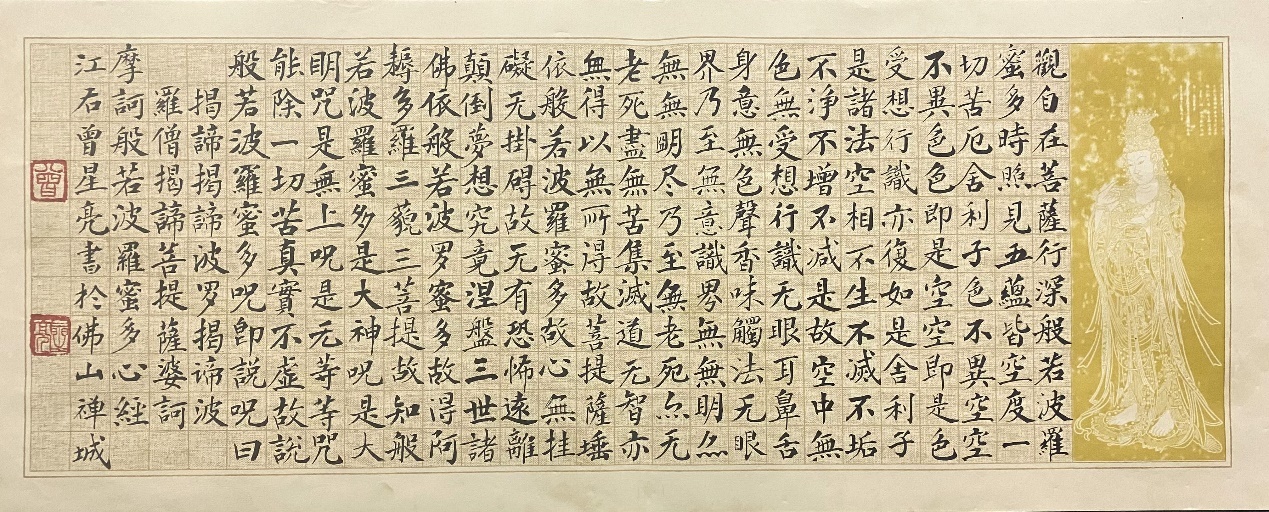 觀自在菩薩行深般若波羅
蜜多時照見五蘊皆空度一
切苦厄舍利子色不異空空
不異色色即是空空即是色
受想行識亦復如是舍利子
是諸法空相不生不滅不垢
不淨不增不减是故空中無
色無受想行識无眼耳鼻舌
身意無色聲香味觸法无眼
界乃至無意識界無無明亦
無無明尽乃至無老死亦无
老死盡無苦集滅道无智亦
無得以無所得故菩提薩埵
依般若波羅蜜多故心無挂
礙无掛碍故无有恐怖遠離
顛倒夢想究竟涅盤三世諸
佛依般若波罗蜜多故得阿
耨多羅三藐三菩提故知般
若波羅蜜多是大神呪是大
明咒是無上呪是无等等咒
能除一切苦真實不虛故說
般若波羅蜜多呪即說呪曰
揭諦揭諦波罗揭谛波
羅僧揭諦菩提薩婆訶
摩訶般若波羅蜜多心經
江右曾星亮書於佛山禅城
曾